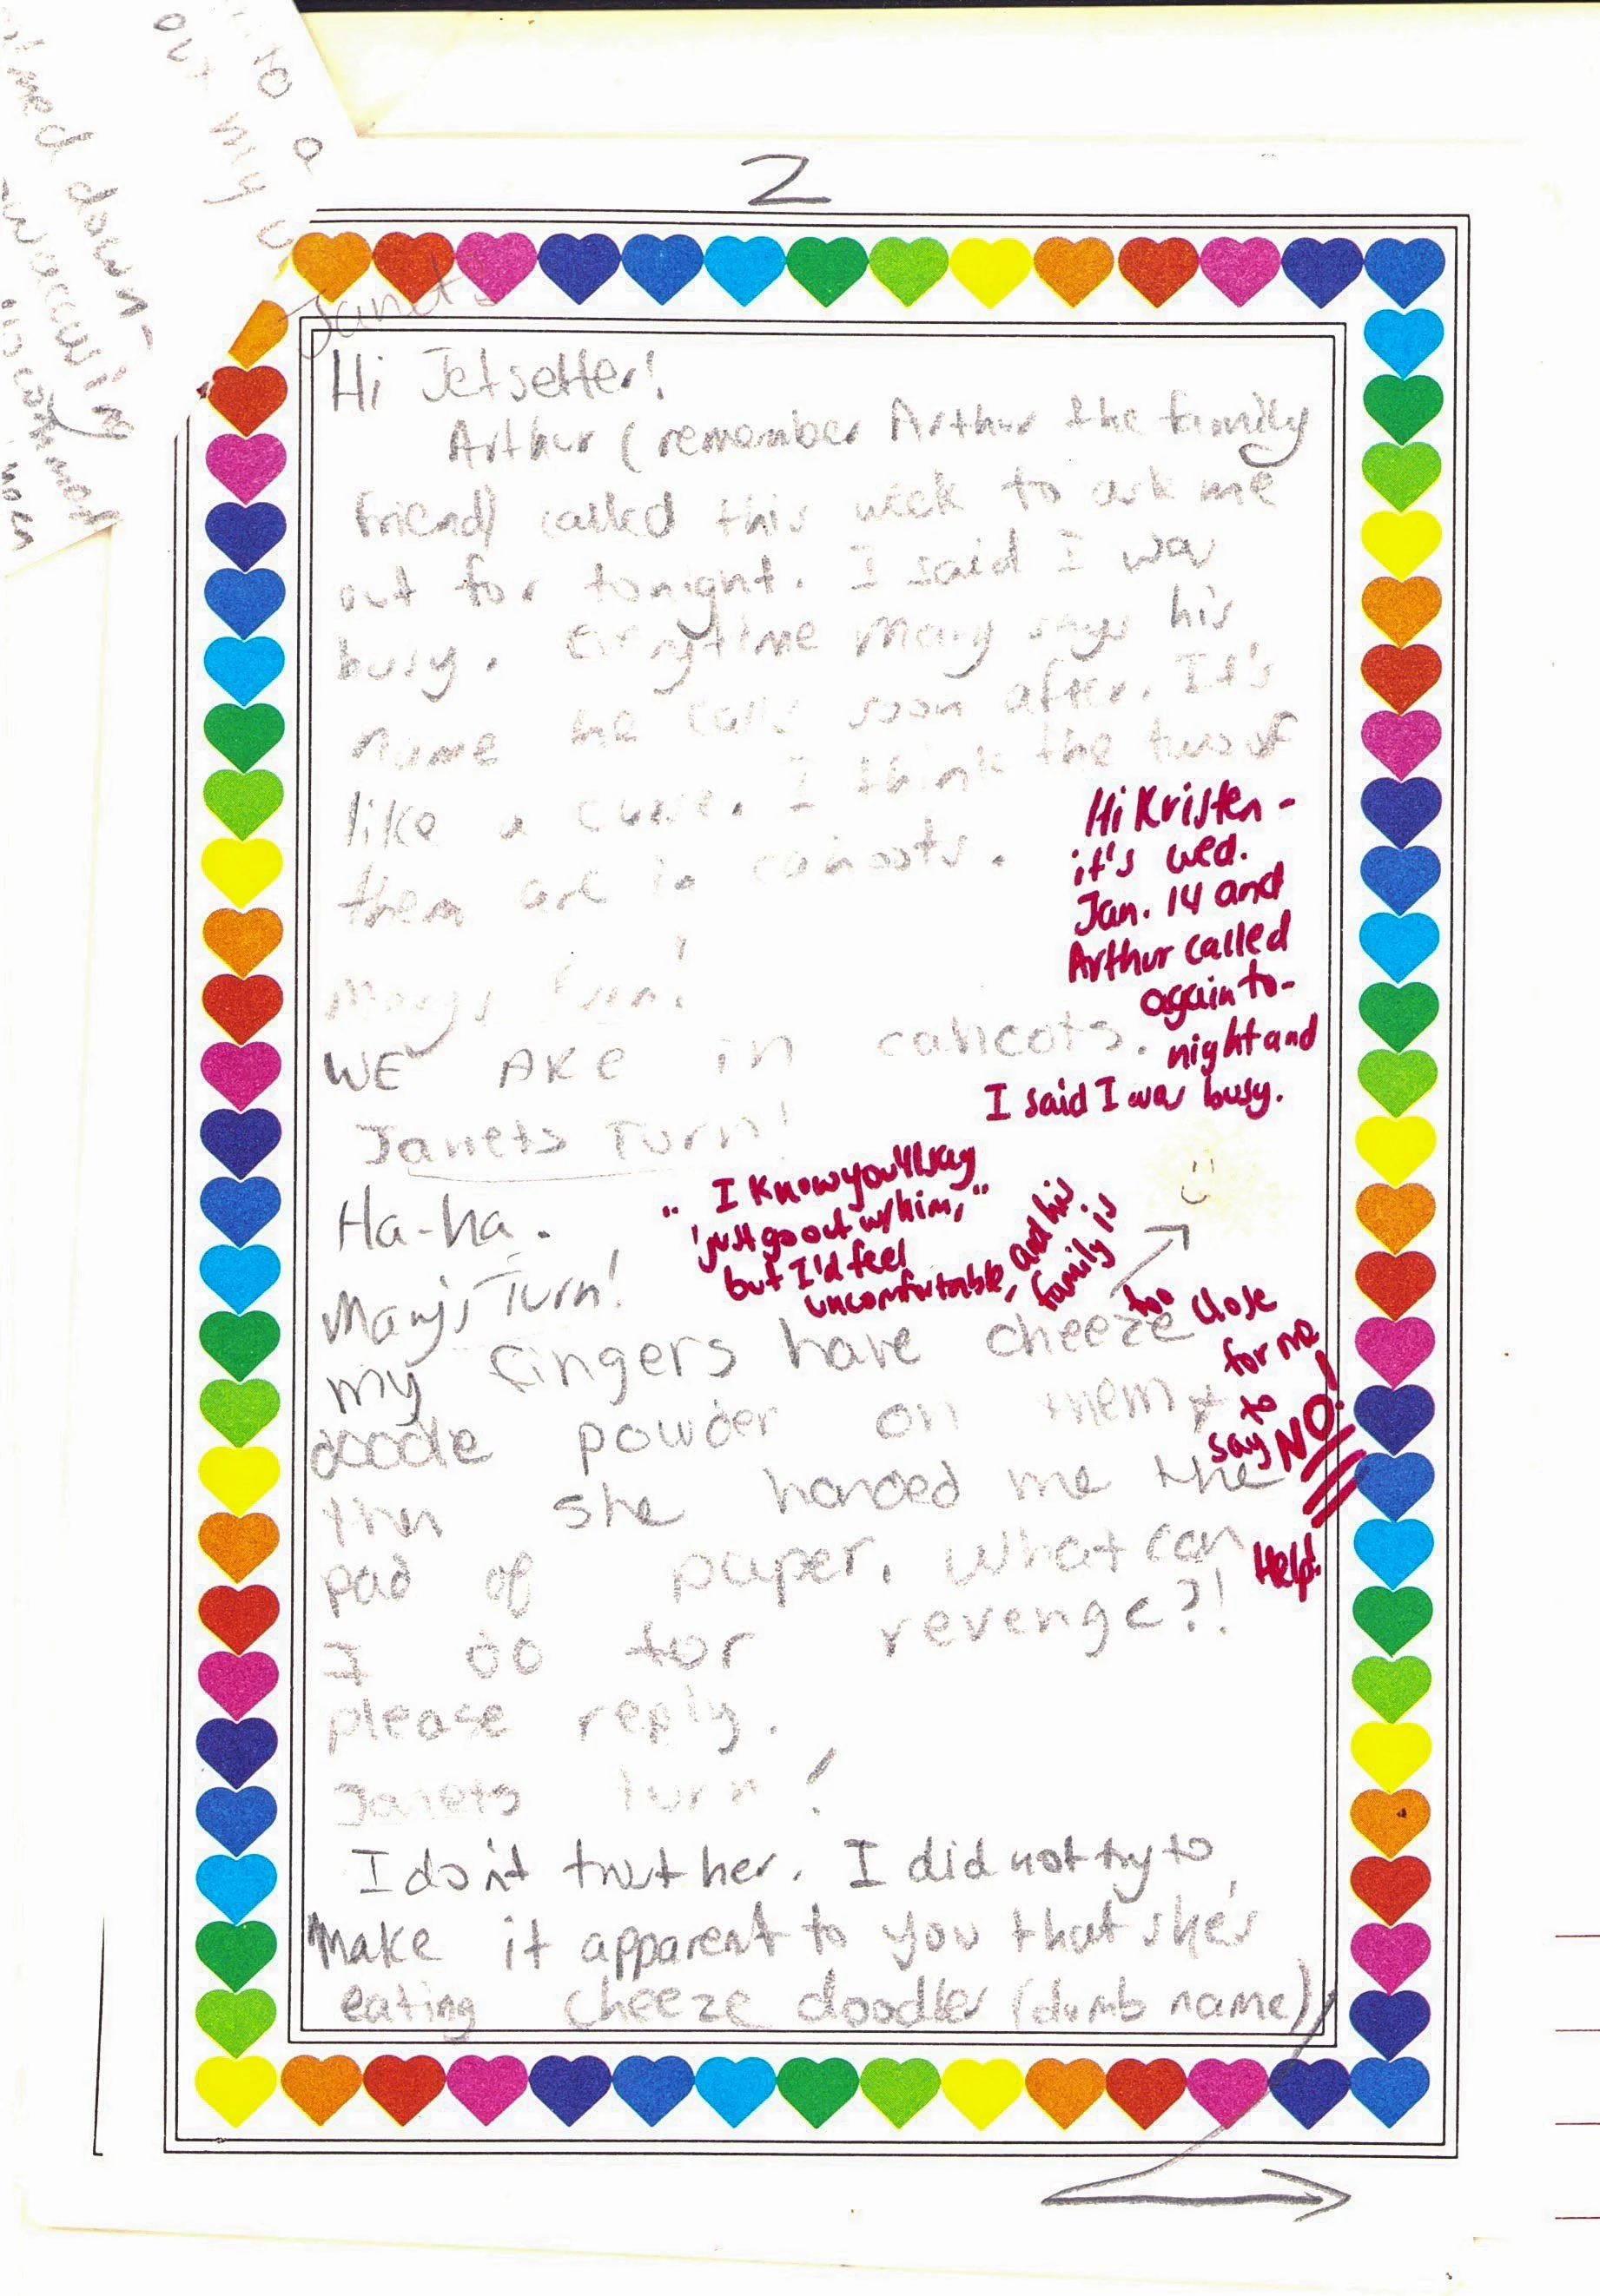 2
Janet's
Hi Jetsetter!
Arthur (remember Arthur the family
friend) called this week to ask me
out for tonight. I said I was
busy. Everytime Mary says his
name he calls soon after. It's
like a curse. I think the two of
them are in cahoots.
Mary's Turn!
WE ARE in cahoots.
Janets Turn!
Ha-ha.
Mary's Turn!
my fingers have cheeze
doodle powder on them +
then she handed me the
pad of paper. What can
I do for revenge?!
please reply.
Janets turn!
I don't trust her. I did not try to
make it apparent to you that she's
eating cheeze doodles (dumb name)
Hi Kristen -
it's wed.
Jan. 14 and
Arthur called
again to-
night and
I said I was busy.
" I know you'll say
'just go out w/him,"
but I'd feel
uncomfortable, and his
family is
too close
for me
to
say NO!
Help!
to a
out my
down-